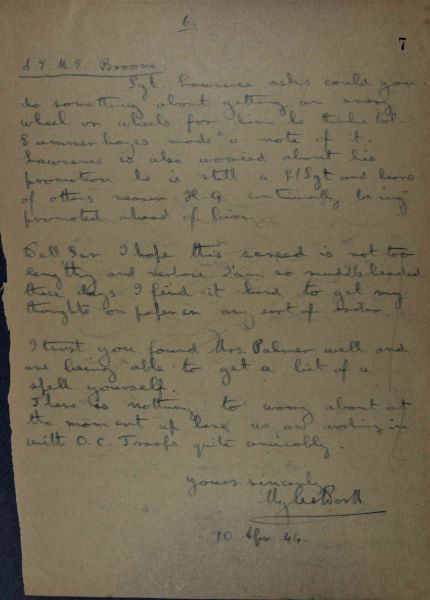 6.
7
S.E.M.E. Broome.
Sgt. Lawrence asks could you
do something about getting an emery
wheel or wheels for him he thinks Col.
Summerhayes made a note of it.
Lawrence is also worried about his
promotion he is still a L/Sgt and hears
of others nearer H.Q. continually being
promoted ahead of him.
Well Sir I hope this screed is not too
lengthy and I'am so muddleheaded
these days I find it hard to get my
thoughts on paper in any sort of order.
I trust you found Mrs. Palmer well and
are being able to get a bit of a
spell yourself.
There is nothing to worry about at
the moment up here we are working in
with O.C. Troops quite amicably.
yours sincerely
10 Apr 44.